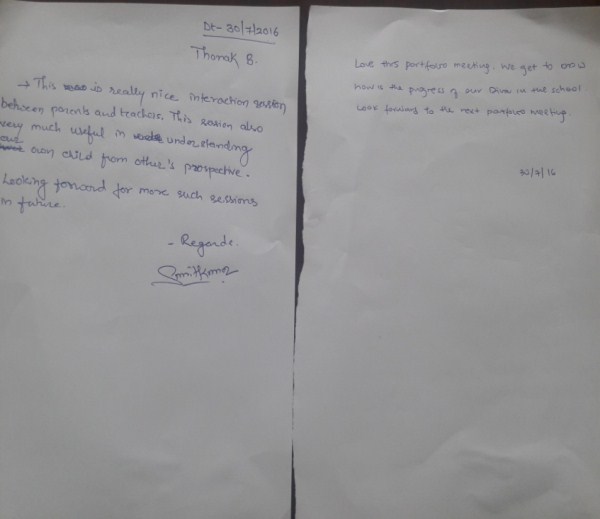 Dt- 30/7/2016
Thanak B.
→ This is really nice interaction session
between parents and teachers. This session also
very much useful in understanding
our own child from other's prospective.
Looking forward for more such sessions
in future.
- Regards.
Love this portfolio meeting. We get to know
how is the progress of our in the school
Look forward to the next portfolio meeting.
30/7/16